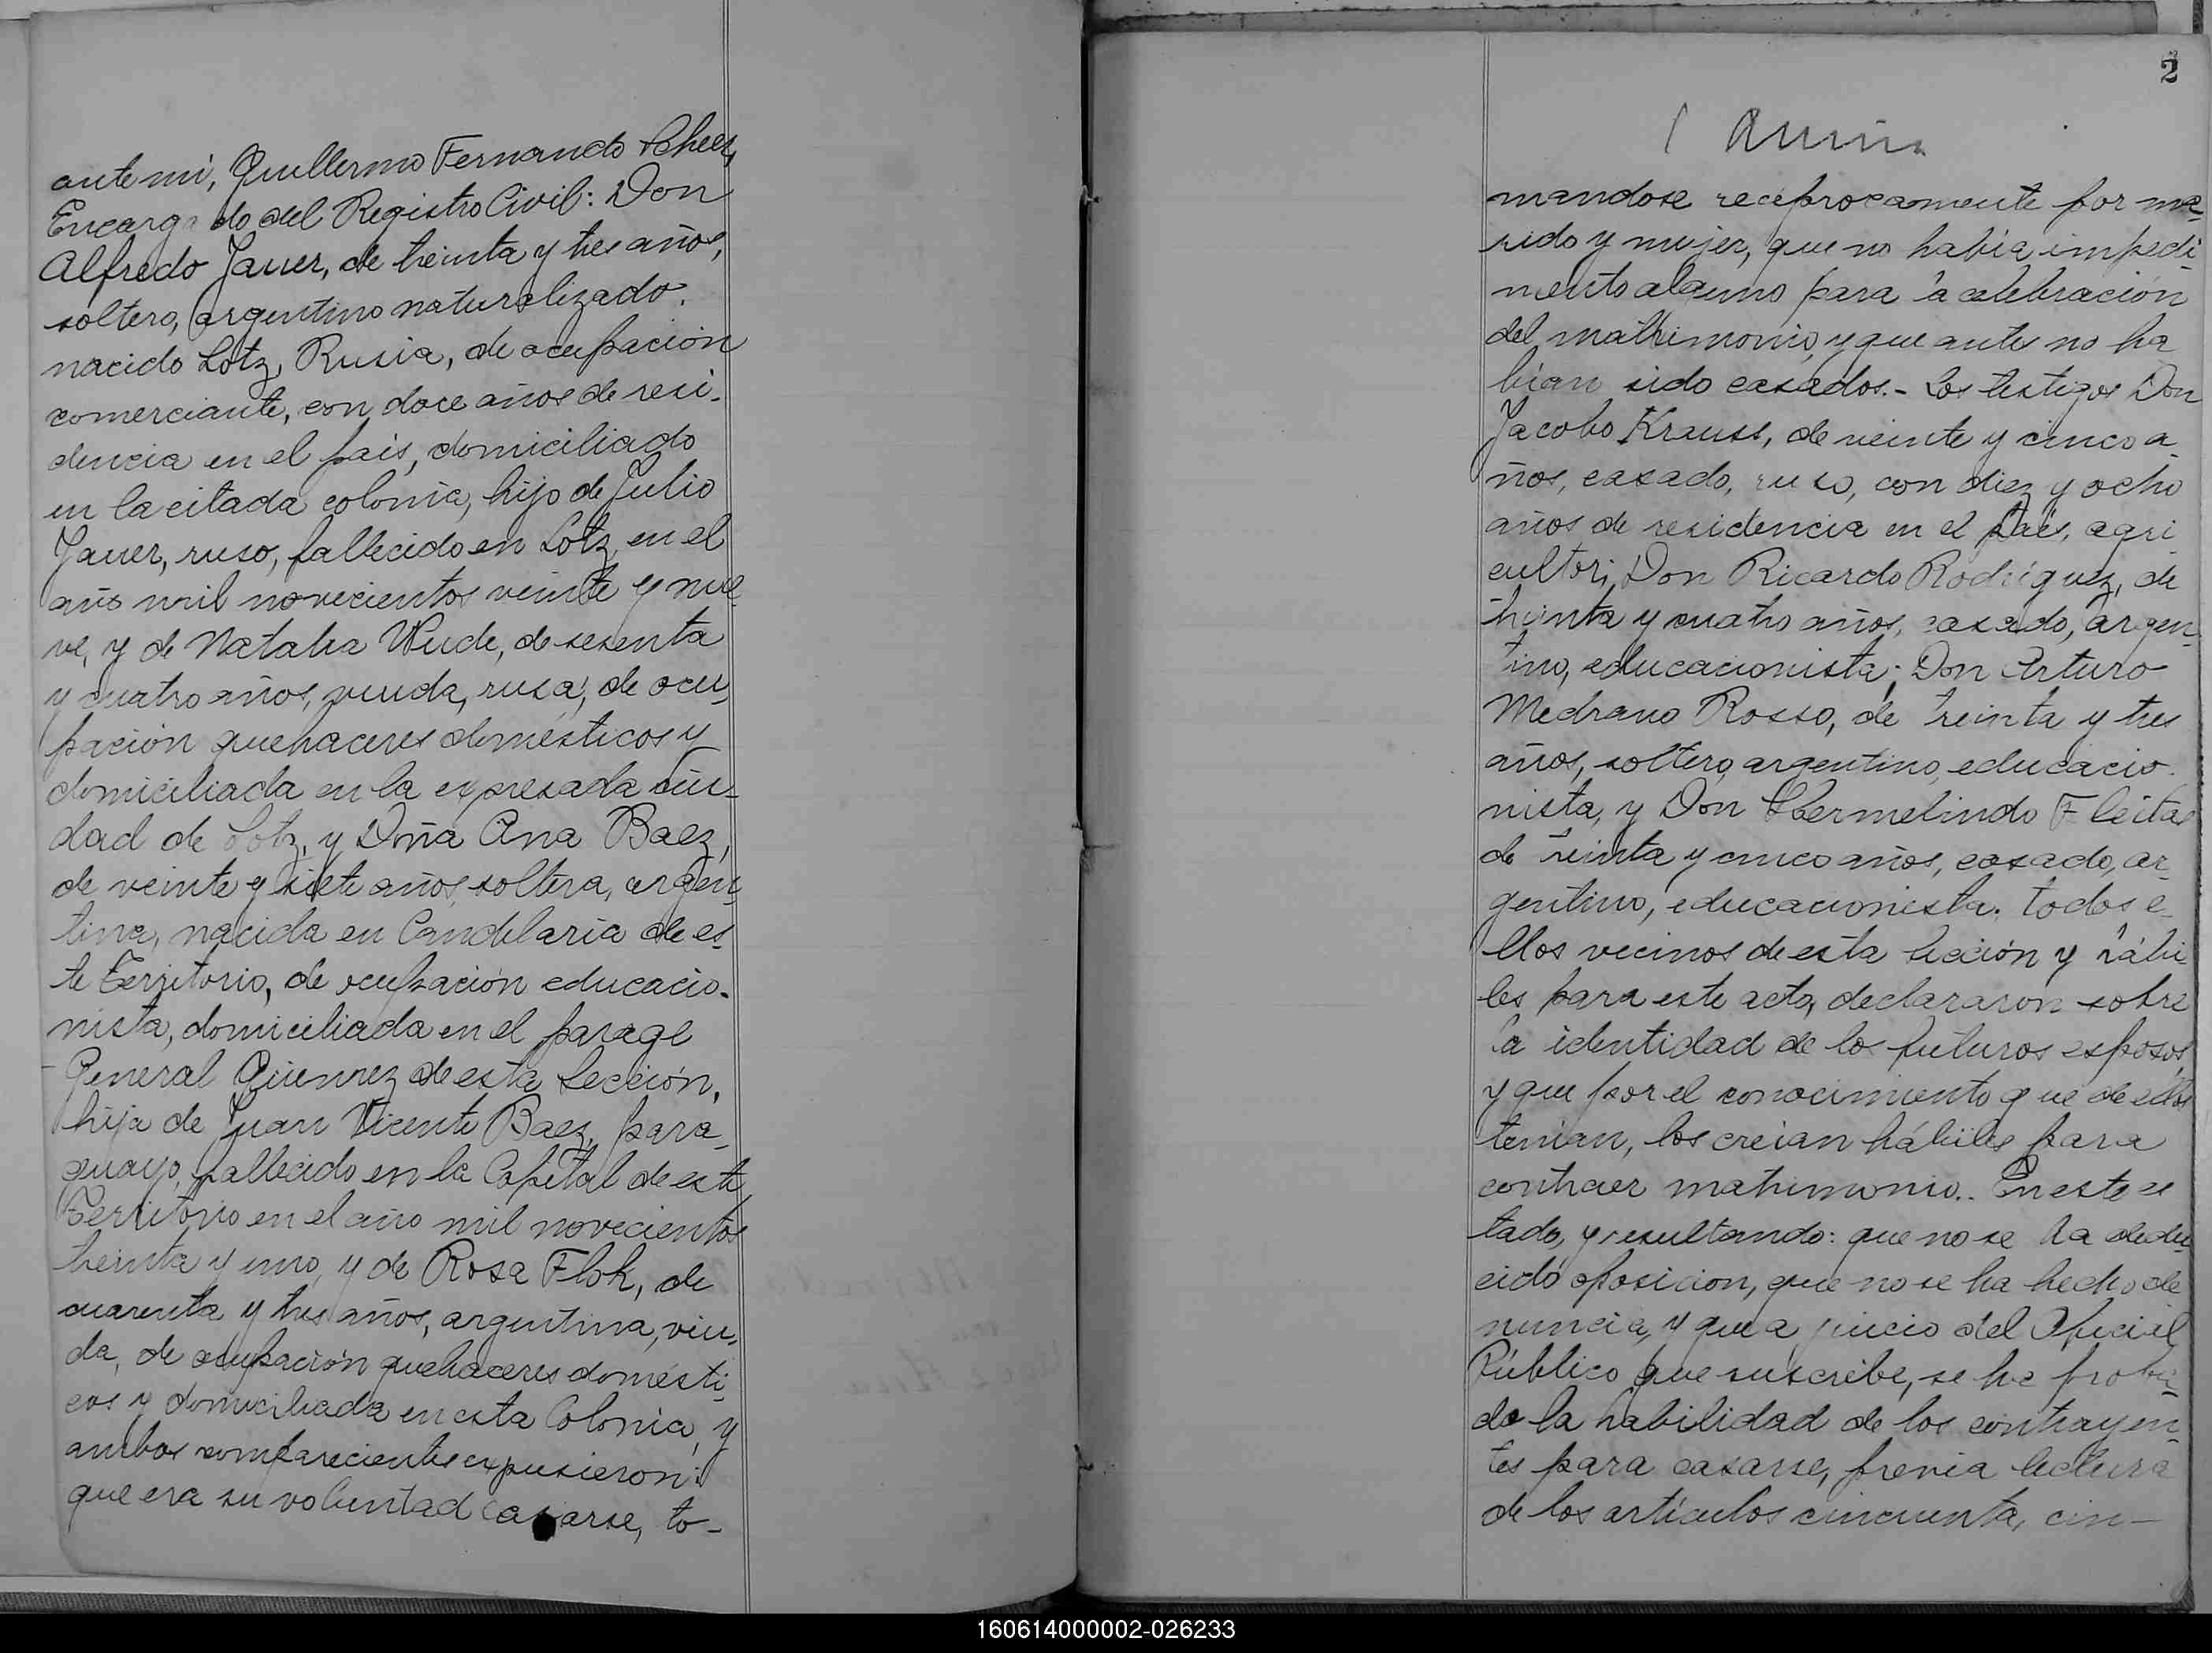 ante mi, Guillermo Fernando Scheer,
Encargado del Registro Civil: Don
Alfredo Jauer, de treinta y tres años,
soltero, argentino naturalizado,
nacido Lotz, Rusia, de ocupación
comerciante, con doce años de resi-
dencia en el país, domiciliado
en la citada colonia, hijo de Julio
Jauer, ruso, fallecido en Lotz, en el
año mil novecientos veinte y nue-
ve, y de Natalia Wude, de sesenta
y cuatro años, viuda, rusa, de ocu-
pación quehaceres domésticos y
domiciliada en la expresada Ciu-
dad de Lotz, y Doña Ana Baez,
de veinte y siete años, soltera, argen-
tina, nacida en Candelaria de es-
te Territorio, de ocupación educacio-
nista, domiciliada en el parage
General de esta Sección,
hija de Juan Vicente Baez, para-
guayo, fallecido en la Capital de este
Territorio en el año mil novecientos
treinta y uno, y de Rosa Flok, de
cuarenta y tres años, argentina, viu-
da, de ocupación quehaceres domésti-
cos y domiciliada en esta Colonia, y
ambos comparecientes expusieron:
que era su voluntad casarse, to-
2
mandose reciprocamente por ma-
rido y mujer, que no había impedi-
mento alguno para la celebración
del matrimonio, y que antes no ha
bían sido casados.- Los testigos Don
Jacobo Krauss, de veinte y cinco a-
ños, casado, ruso, con diez y ocho
años de residencia en el país, agri
cultor; Don Ricardo Rodriguez, de
treinta y cuatro años, casado, argen-
tino, educacionista; Don Arturo
Medrano Rosso, de treinta y tres
años, soltero, argentino, educacio-
nista, y Don Hermelindo Fleitas
de treinta y cinco años, casado, ar-
gentino, educacionista, todos e-
llos vecinos de esta Sección y hábi
les para este acto, declararon sobre
la identidad de los futuros esposos,
y que por el conocimiento que de ellos
tenian, los creian hábiles para
contraer matrimonio.. En este es
tado, y resultando: que no se ha dedu-
cido oposicion, que no se ha hecho de
nuncia, y que a juicio del Oficial
Público que suscribe, se ha proba-
do la habilidad de los contrayen-
tes para casarse, previa lectura
de los artículos cincuenta, cin-
160614000002-026233